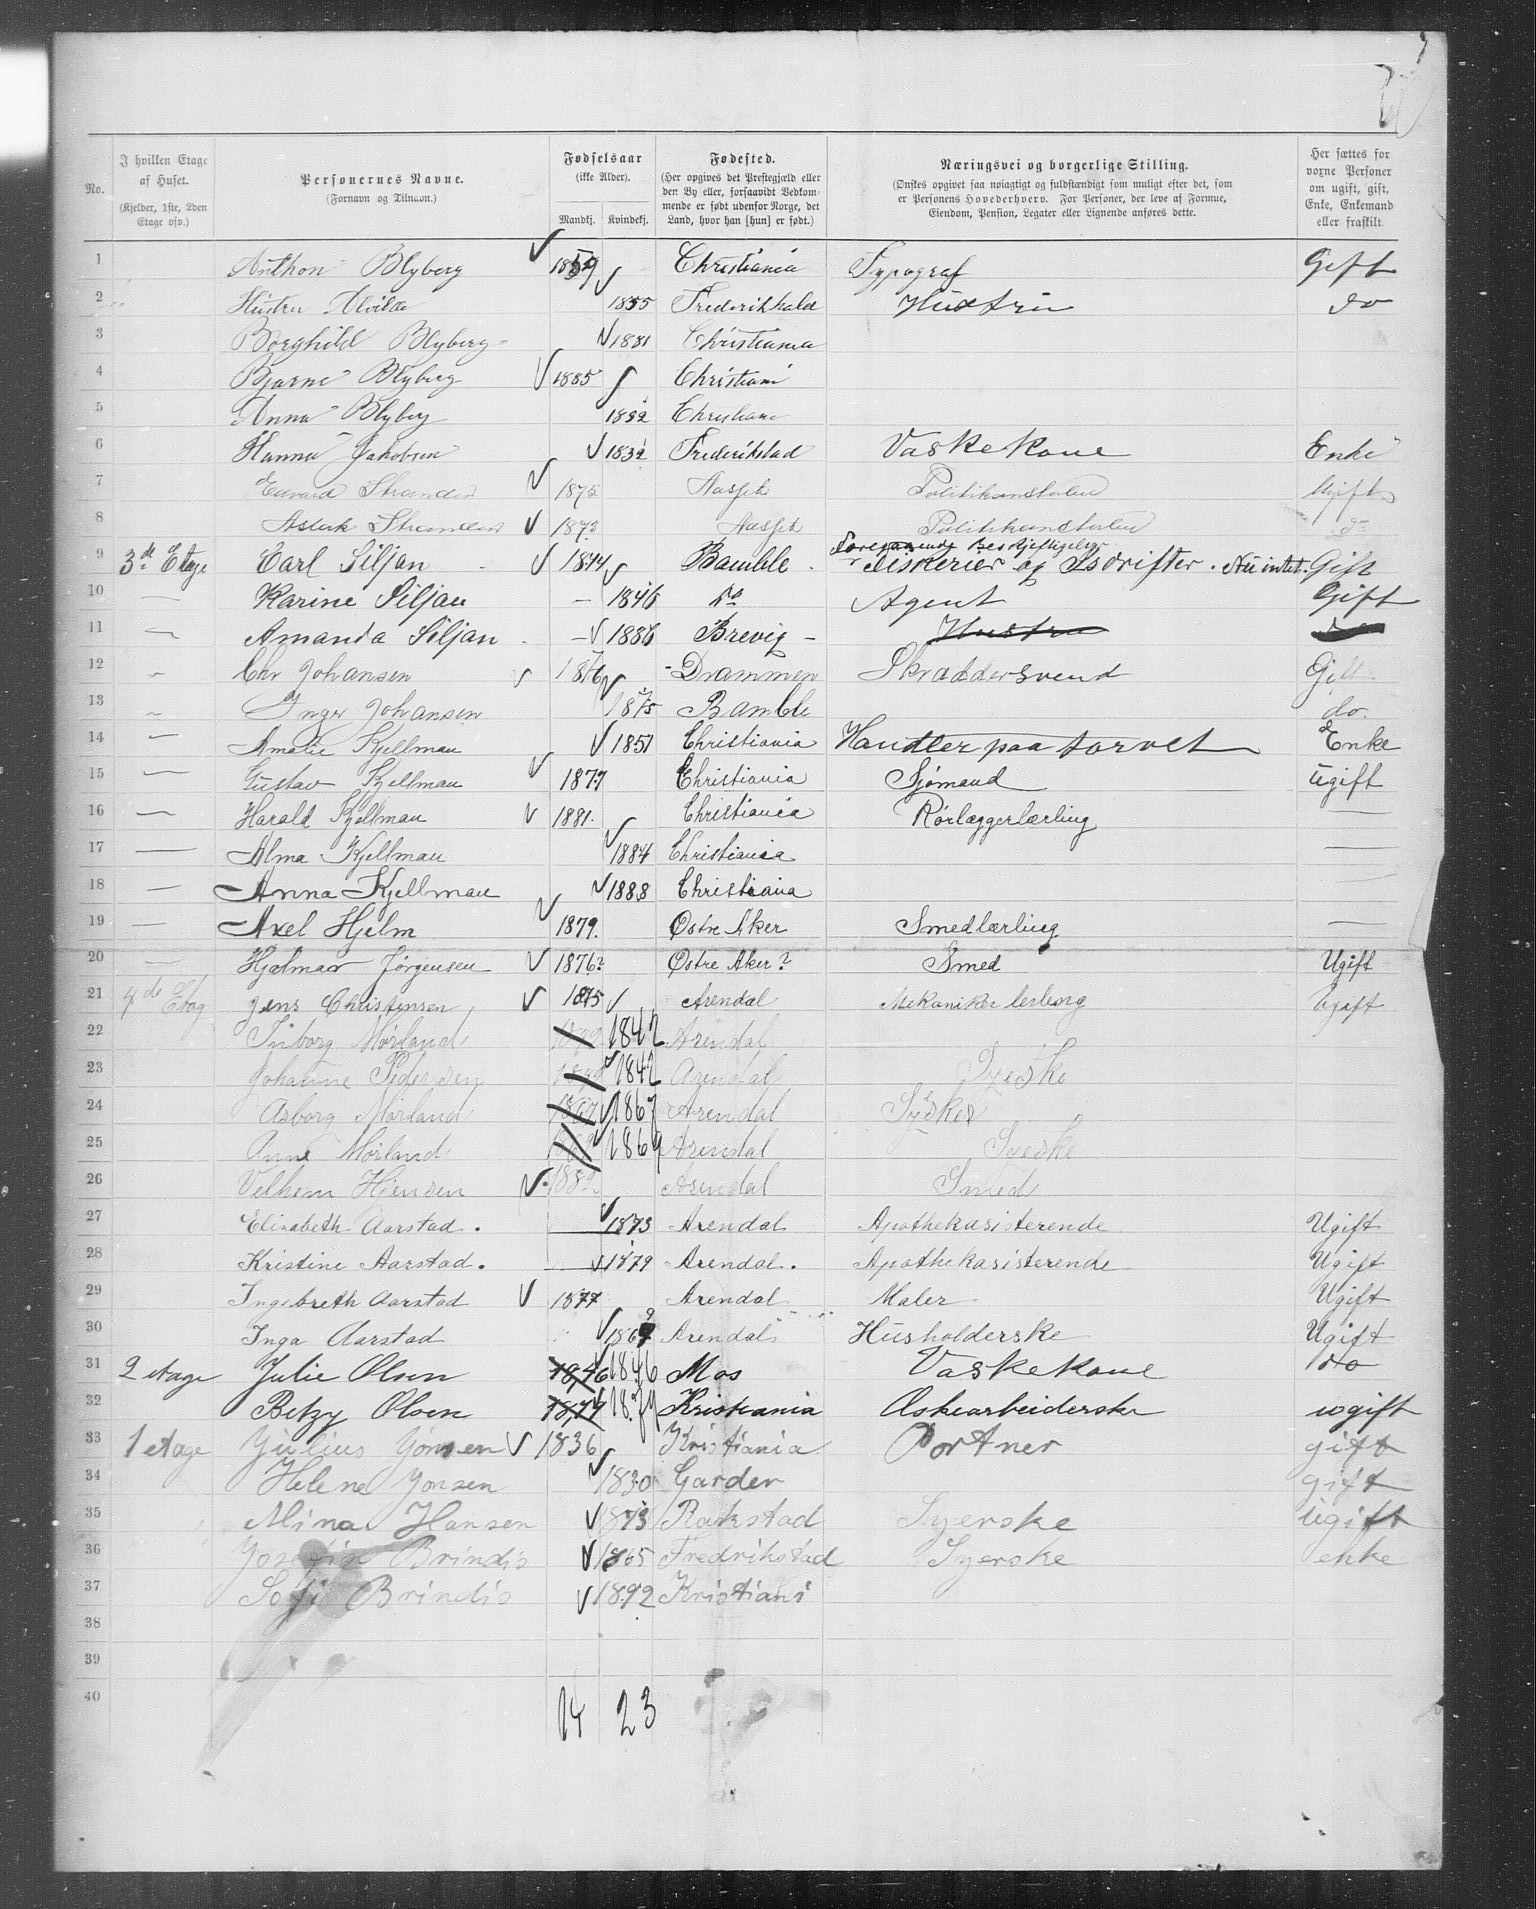 No.
I hvilken Etage af Huset. (Kjelder, 1ste, 2den Etage osv.)
Personernes Navne. (Fornavn og Tilnavn.)
Fødselsaar (ikke Alder). Mandkj. Kvindekj.
Fødested. (Her opgives det Prestegjæld eller den By eller, forsaavidt Vedkommende er født udenfor Norge, det Land, hvor han [hun] er født.)
Næringsvei og borgerlige Stilling. (Ønskes opgivet saa nøiagtigt og fuldstændigt som muligt efter det, som er Personens Hovederhverv. For Personer, der leve af Formue, Eiendom, Pension, Legater eller Lignende anføres dette.
Her sættes for vorne Personer om ugift, gift, Enke, Enkemand eller fraskilt.
1 Anthon Blyberg 1859 Christiania Typograf Gift
2 Hustru Alvilde 1855 Frederikhald Hustru do
3 Borghild Blyberg 1881 Christiania
4 Bjarne Blyberg 1885 Christiani
5 Anna Blyberg 1892 Christiane
6 Hanna Jakobsen 1832 Frederikstad Vaskekone Enke
7 Edvard 1875 Ugift
8 1873 do
9 3de Etage Carl Siljan 1844 Bamble Fiskerier og Isdrifter. Nu intet. Gift
10 Karine Siljan 1846 do Agent Gift
11 Amanda Siljan 1886 Brevig Hustru
12 Chr Johansen 1876 Drammen Skraddersvend Gift
13 Inger Johansen 1875 Bamble do.
14 Amalie Kjellman 1851 Christiania Handler paa torvet Enke
15 Gustav Kjellman 1877 Christiania Sjömand Ugift
16 Harald Kjellman 1881. Christiania Rørlæggerlærling
17 Alma Kjellman 1884 Christiania
18 Anna Kjellman 1888 Christiania
19 Axel Hjelm 1879. Østre Aker Smedlærling
20 Hjalmar Jørgensen 1876? Østre Aker? Smed Ugift
21 4de Etag Jens Christensen 1875 Arendal Mekaniker lerleng Ugift
22 Mørland 1842 Arendal
23 Johanne Pedersen 1842 Arendal Syeske
24 Asborg Mørland 1867 Arendal
25 Anne Mørland 1869 Arendal Syeske
26 Velhem Hjensen 1882 Arendal Smed
27 Elisabeth Aarstad. 1873 Arendal Apothekasisterende Ugift
28 Kristine Aarstad. 1879 Arendal. Apothekasisterende Ugift
29 Ingebreth Aarstad 1877 Arendal Maler Ugift
30 Inga Aarstad 1869 Arendal Husholderske Ugift
31 2 etage Julie Olsen 1846 1846 Mos Vaskekone do
32 Betzy Olsen 1874 Kristiania Æskearbeiderske ugift
33 1 etage Julius Jonsen 1836 Kristiania Portner gift
34 Helene Jonsen 1830 Garder gift
35 Mina Hansen 1873 Rakstad Syerske ugift
36 Josefin Brindis 1865 Fredrikstad Syerske enke
37 Sofi Brindis 1892 Kristiani
38
39
40
14 23